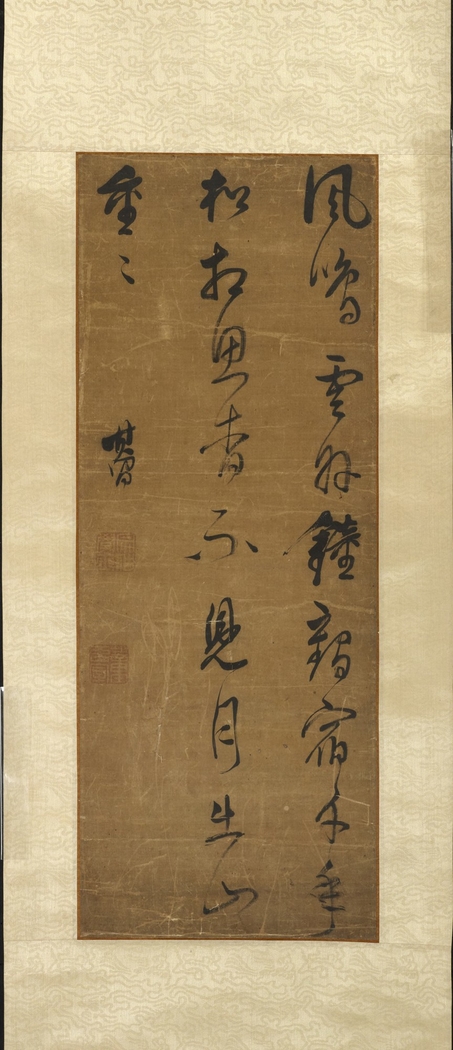 風鳴雲外鐘鶴宿千年
松相思杳不見月出山
重〻
其昌